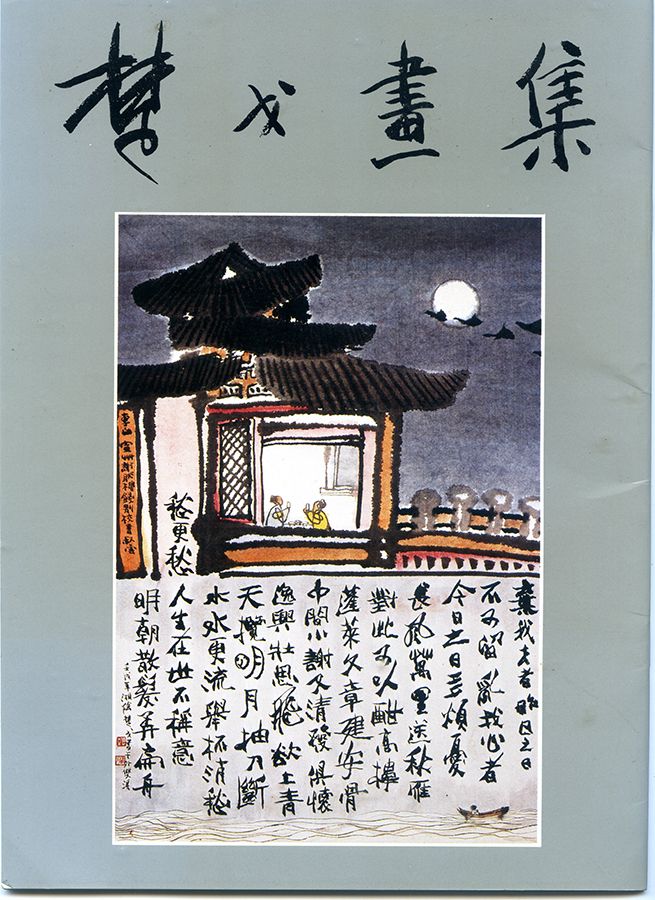 楚戈畫集
棄我去者昨日之日
不可留亂我心者
今日之日多煩憂
長風萬里送秋雁
對此可以酣高樓
蓬萊文章建安骨
中間小謝又清發俱懷
逸興壯思飛欲上青
天攬明月抽刀斷
水水更流舉杯消愁
愁更愁人生在世不稱意
明朝散髮弄扁舟
李白宣州謝朓樓餞別校書叔雲